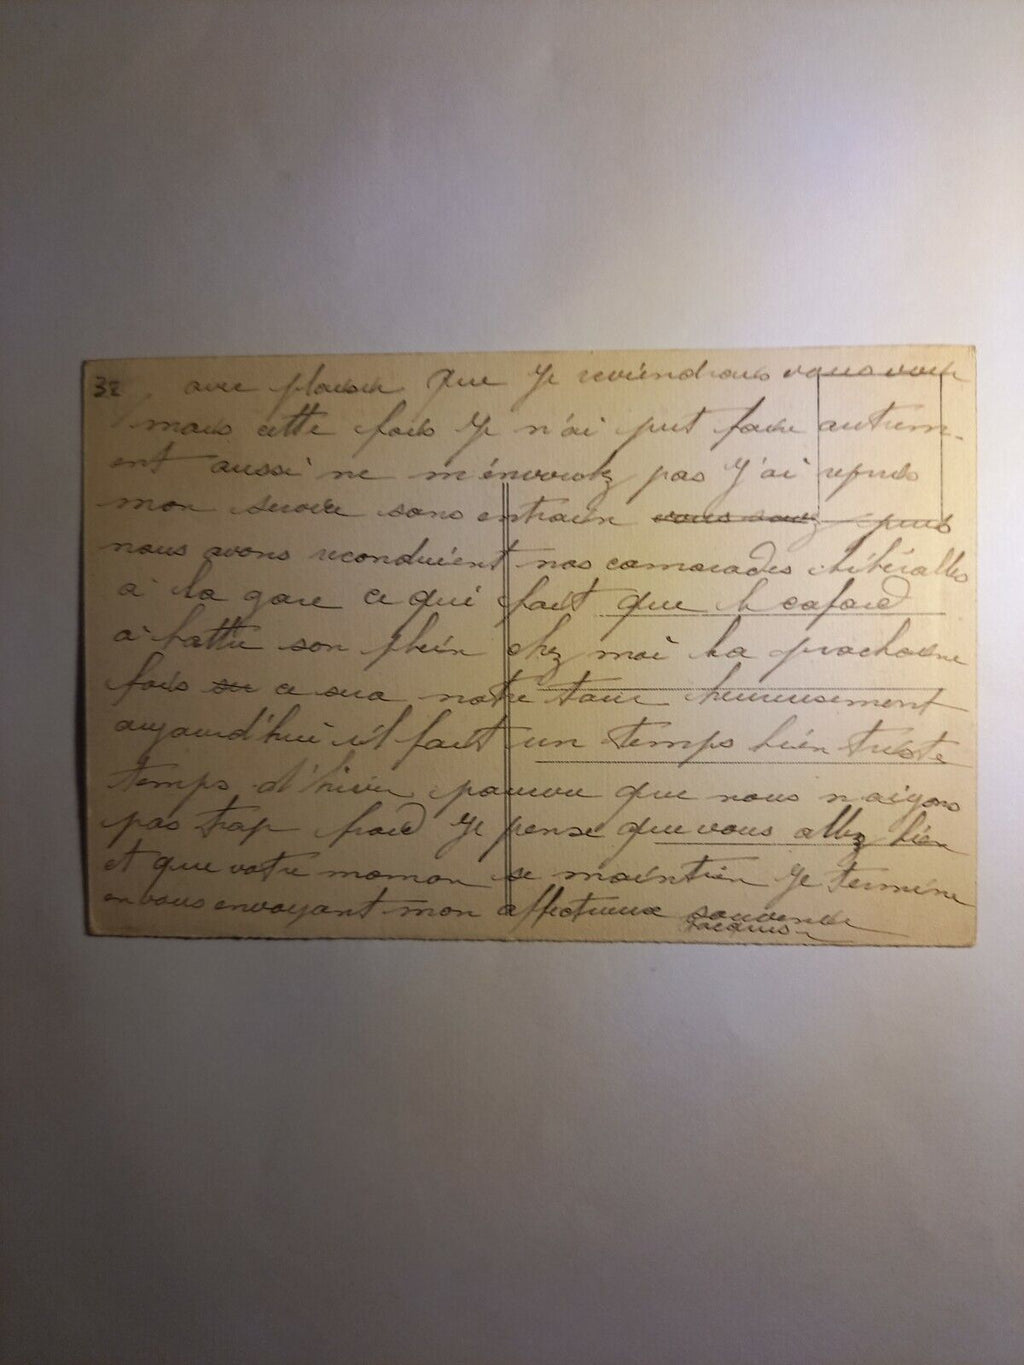 32 avec plaisir que je reviendrais vous voir
mais cette fois je n'ai put faire autrem-
ent aussi ne m'envoulez pas j'ai repris
mon service sans entrain vous savez puis
nous avons reconduient nos camarades libérables
à la gare ce qui fait que le cafard
à battu son plein chez moi la prochaine
fois se ce sera notre tour heureusement
aujourd'hui il fait un temps bien triste
temps d'hiver pourvu que nous n'aiyons
pas trop froid je pense que vous allez bien
et que votre maman se maintien je termine
en vous envoyant mon affectueux souvenir
Jacques